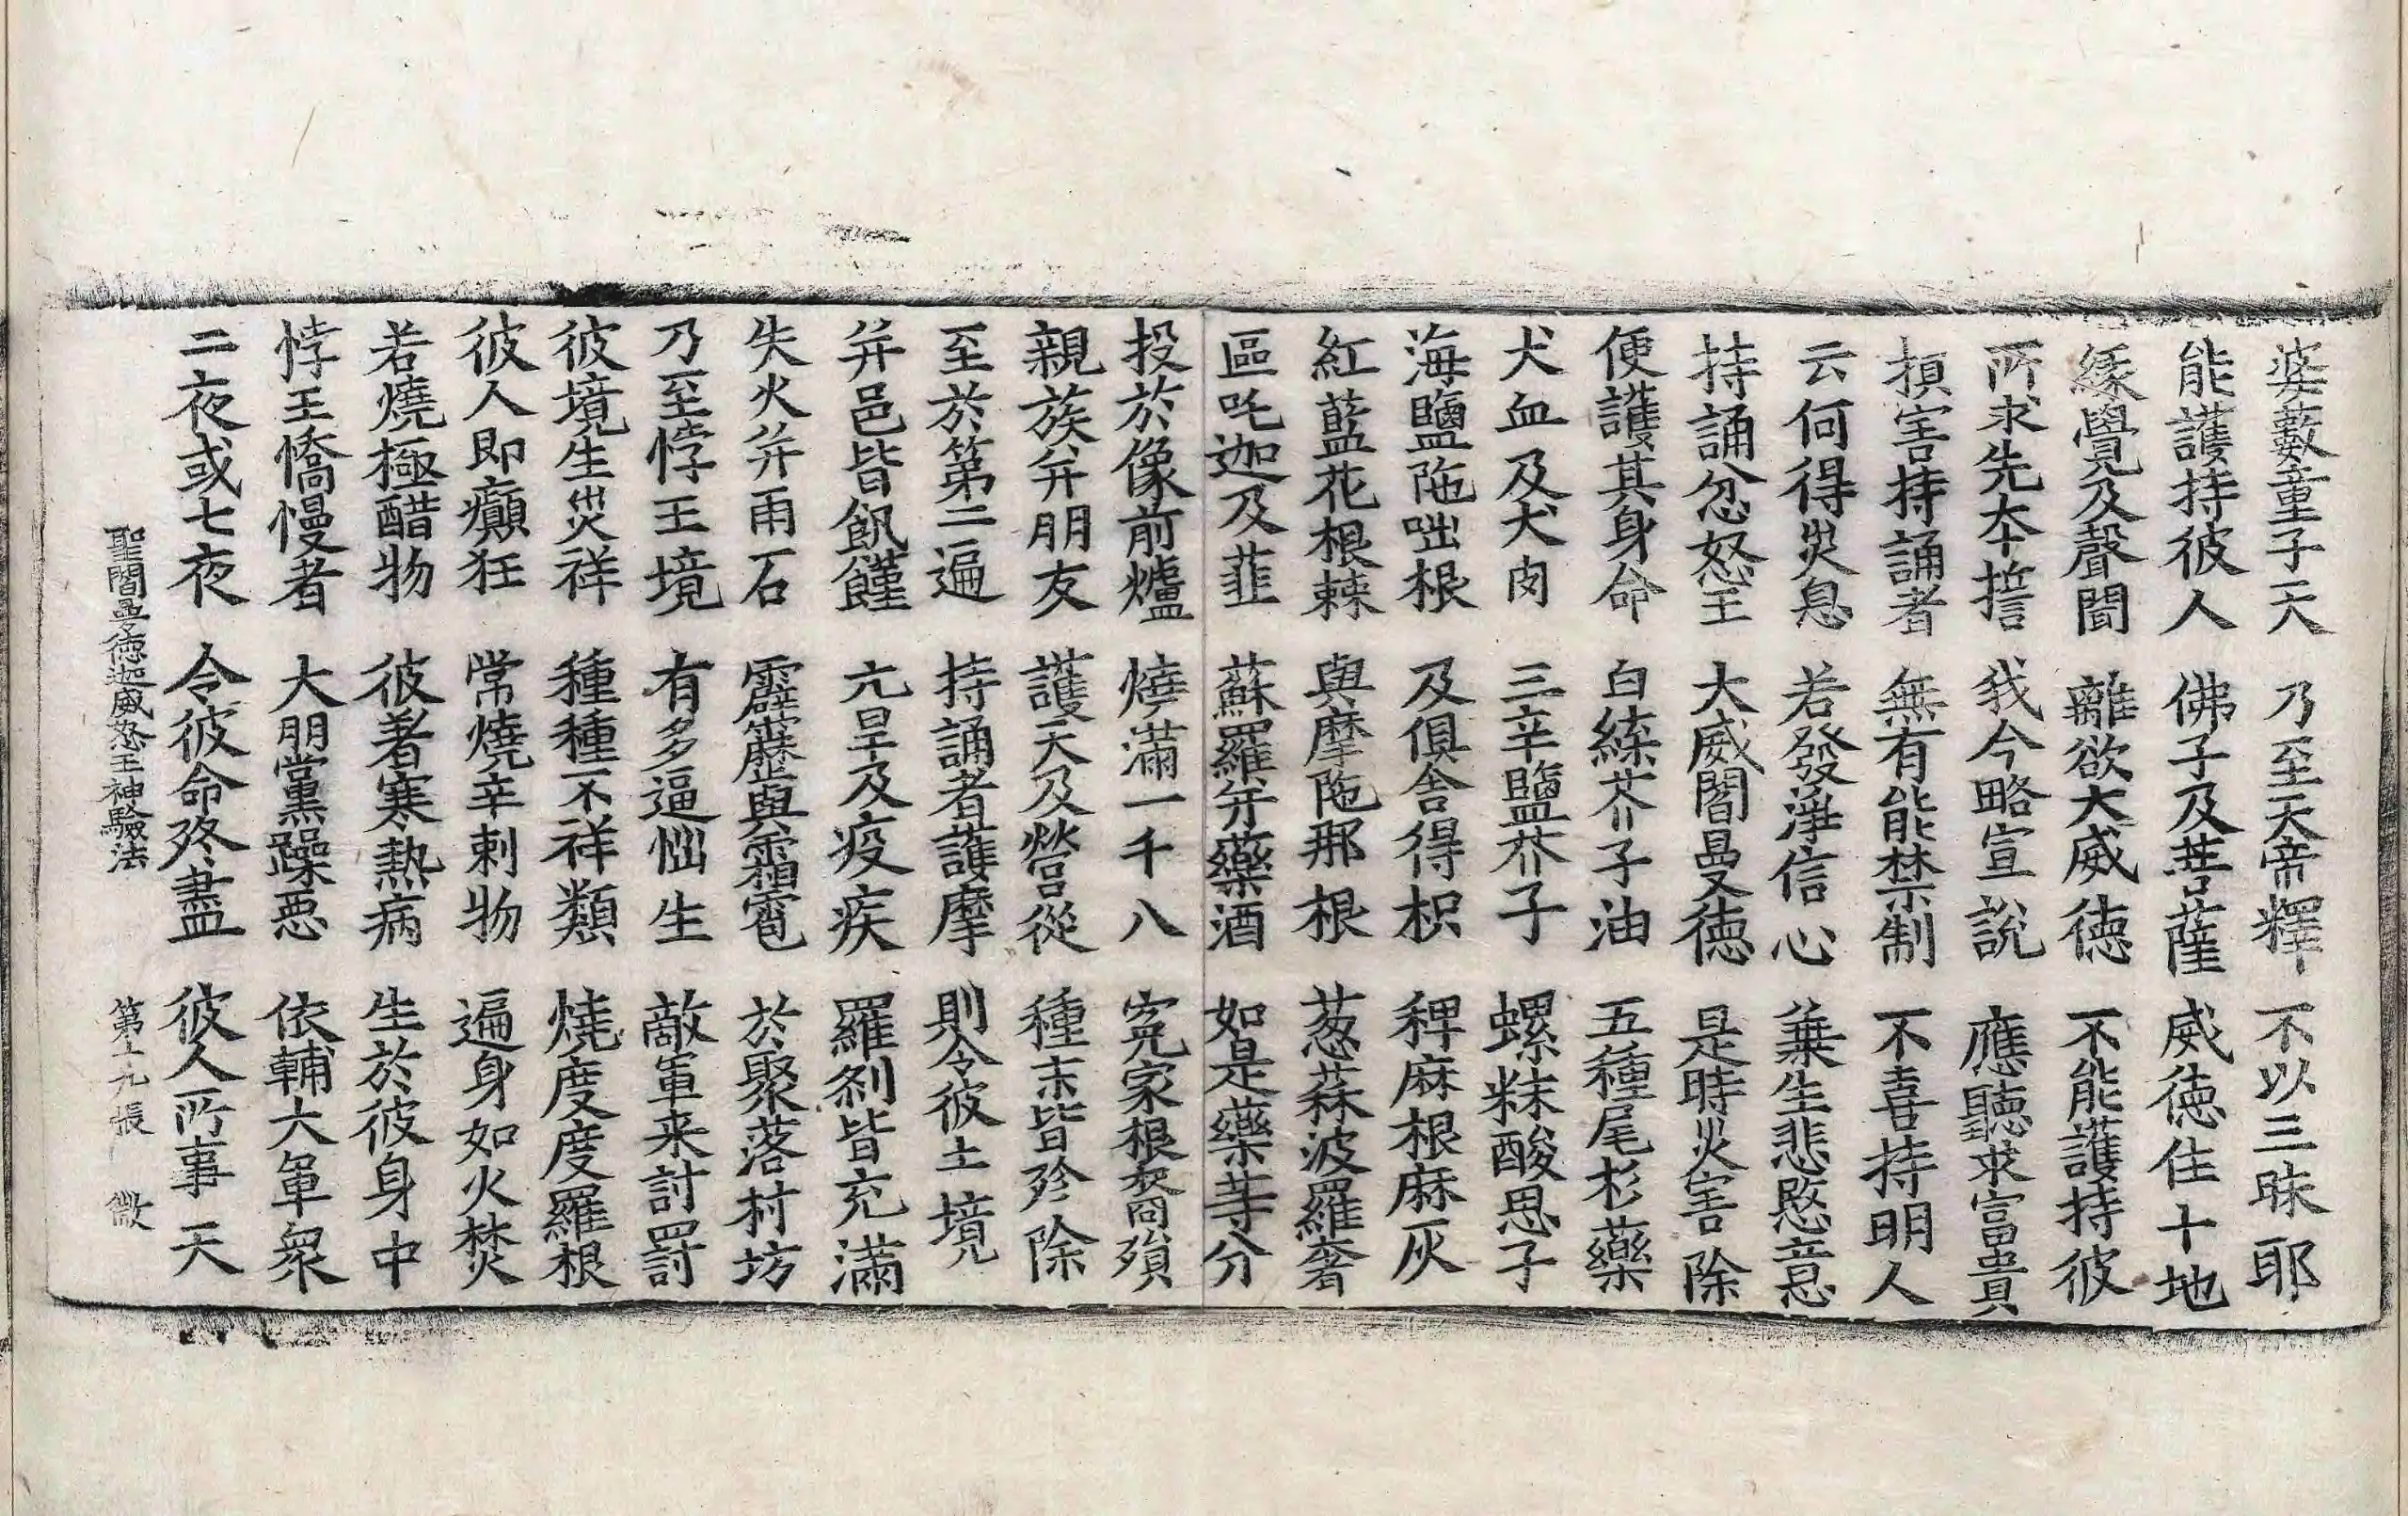 婆藪童子天　乃至天帝釋　不以三昧耶
能護持彼人　佛子及菩薩　威德住十地
緣覺及聲聞　離欲大威德　不能護持彼
所求先本誓　我今略宣說　應聽求富貴
損害持誦者　無有能禁制　不喜持明人
云何得災息　若發淨信心　棄生悲愍意
持誦忿怒王　大威閻曼德　是時災害除
便護其身命　白練芥子油　五種尾杉藥
犬血及犬肉　三辛鹽芥子　螺粖酸思子
海鹽陁咄根　及俱舍得枳　稗麻根麻灰
紅藍花根棘　與摩陁那根　葱蒜波羅奢
區吒迦及韮　蘇羅弁藥酒　如是藥等分
投於像前爐　燒滿一千八　寃家根裔殞
親族弁朋友　護天及營從　種末皆殄除
至於第二遍　持誦者護摩　則令彼土境
弁邑皆飢饉　亢旱及疫疾　羅刹皆充滿
失火弁雨石　霹靂與霜雹　於聚落村坊
乃至悖王境　有多逼惱生　敵軍来討罸
彼境生災祥　種種不祥類　燒度度羅根
彼人即癲狂　常燒辛刺物　遍身如火焚
若燒極醋物　彼著寒熱病　生於彼身中
悖王憍慢者　大朋黨躁惡　依輔大軍衆
二夜或七夜　令彼命終盡　彼人所事天
聖閻曼德迦威怒王神驗法　第十九張　微